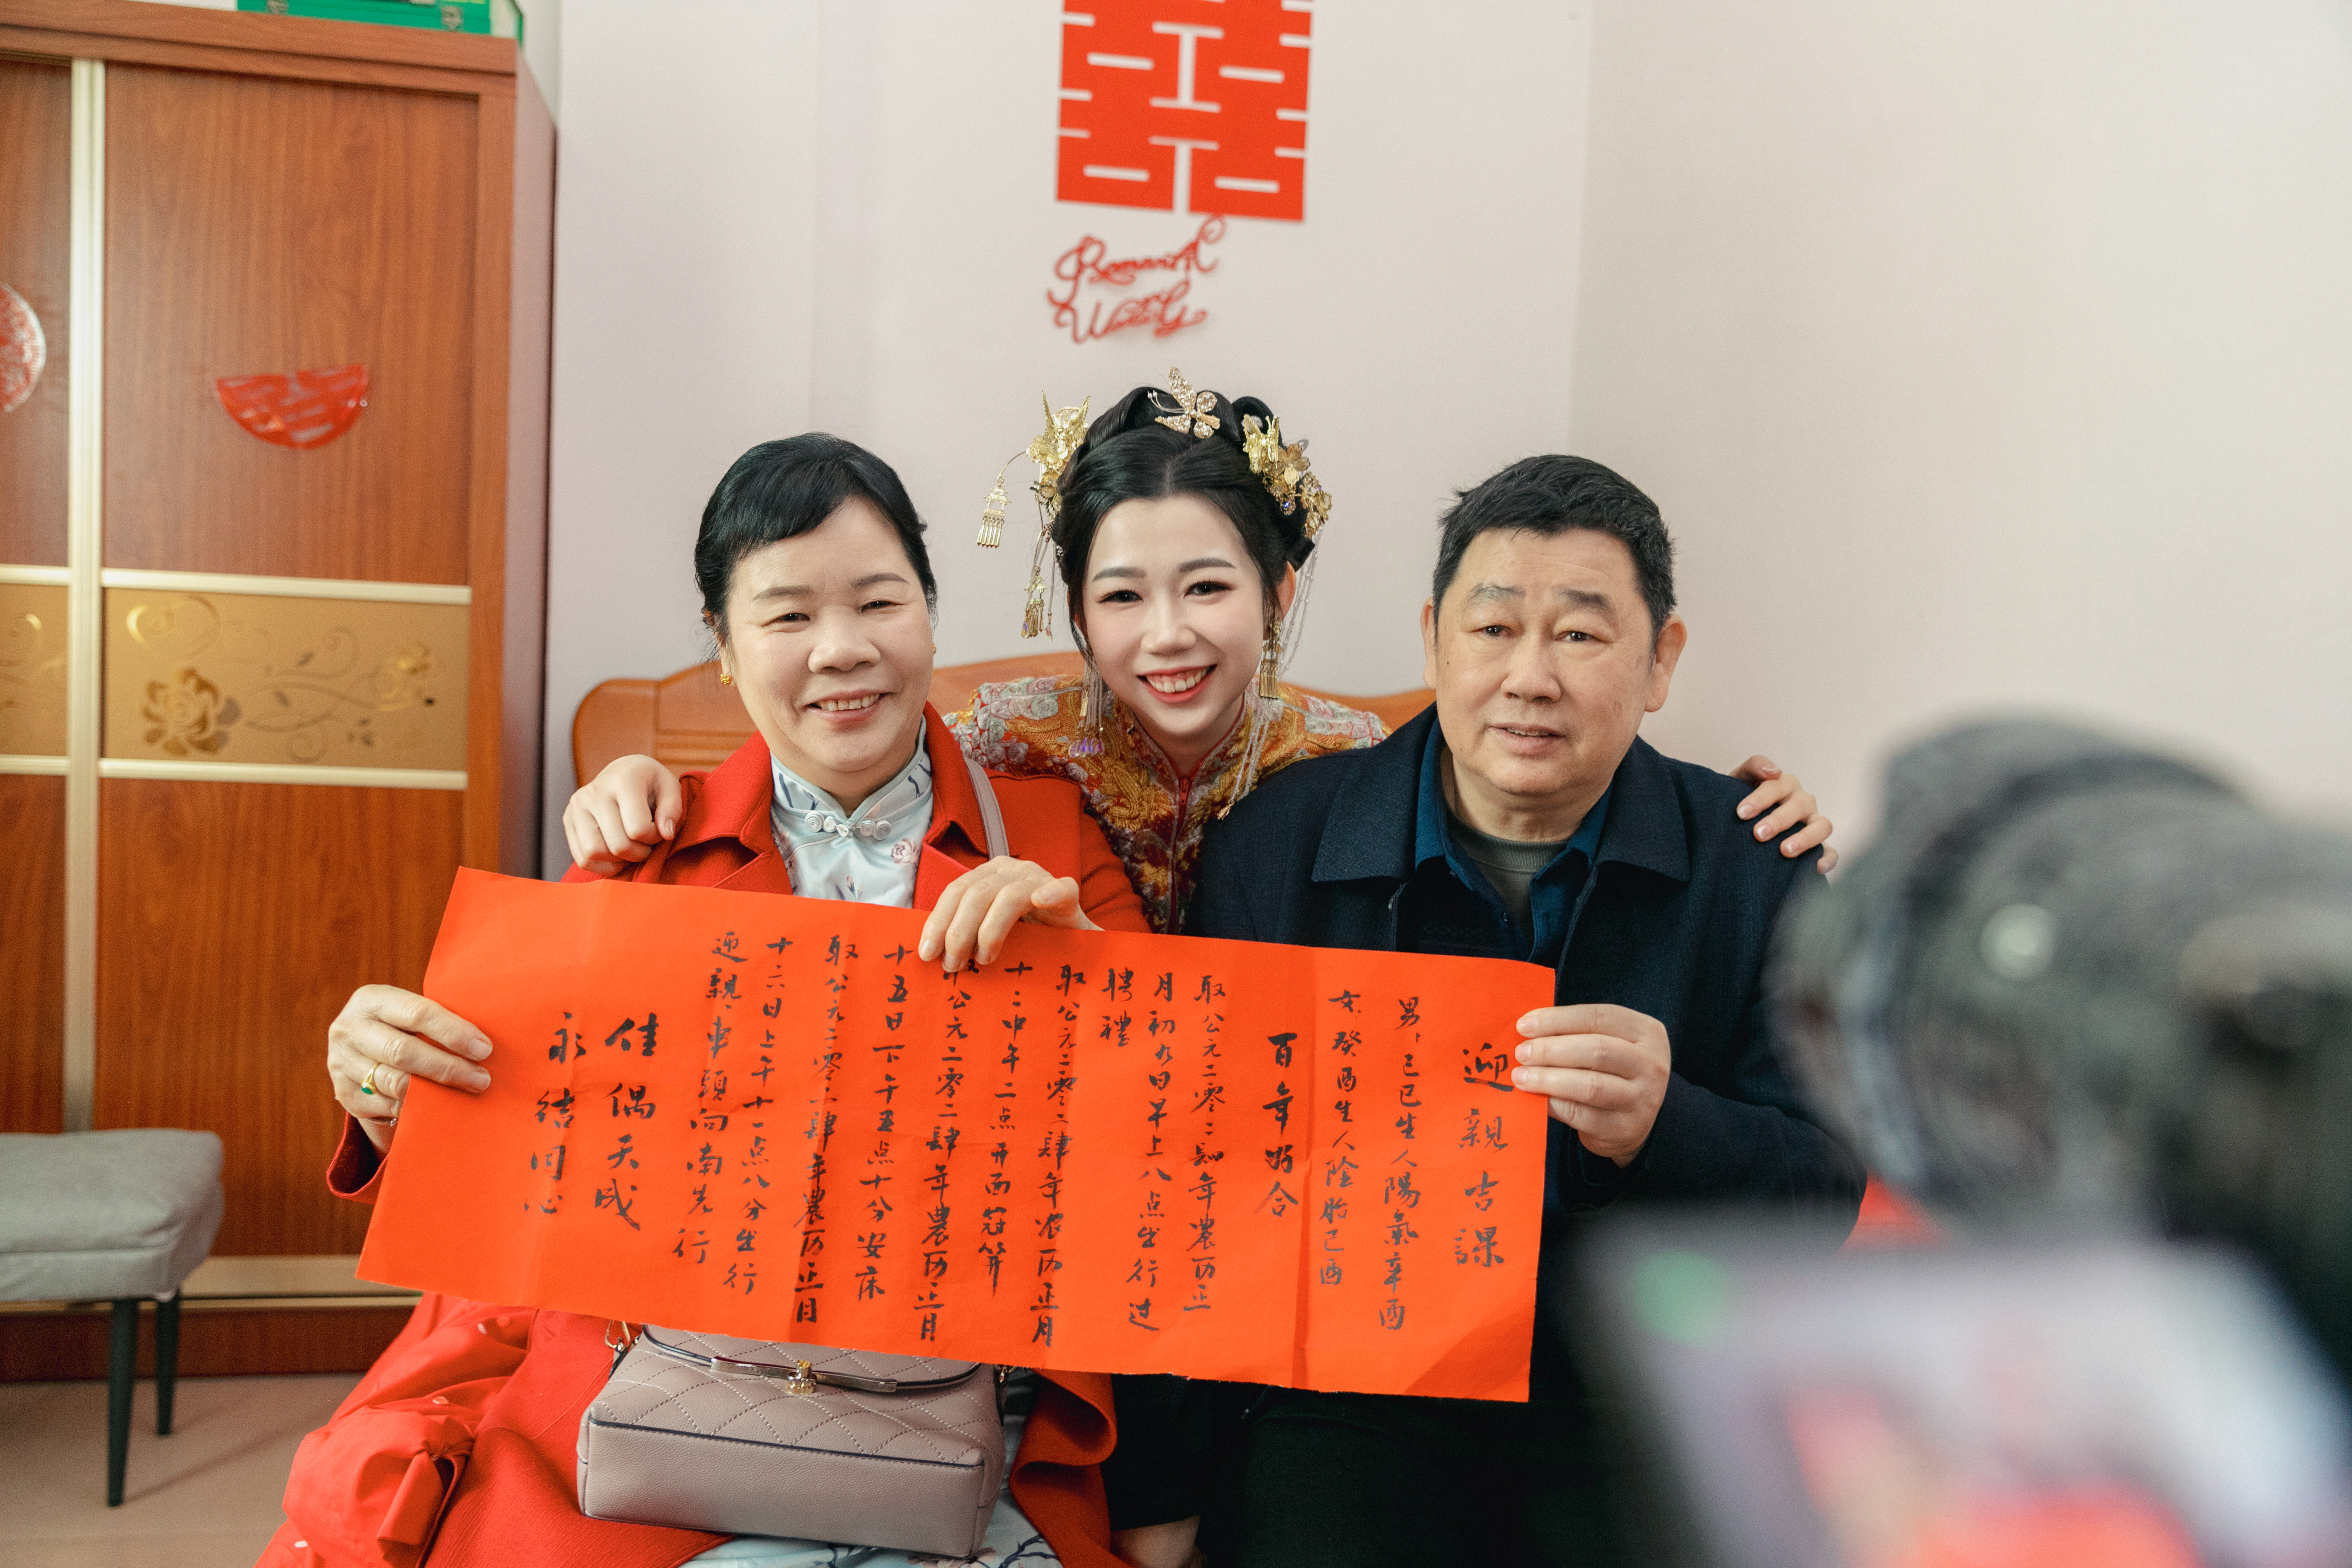 囍
Romantic
迎親吉課
男，己巳生人陽氣辛酉
女，癸酉生人陰胎己酉
百年好合
取公元二零二肆年農历正
月初九日早上八点出行过
聘禮
取公元二零二肆年农历正月
十二中午二点开面冠笄
取公元二零二肆年農历正月
十五日下午五点十分安床
取公元二零二肆年農历正月
十六日上午十一点八分出行
迎親，車頭向南先行
佳偶天成
永结同心